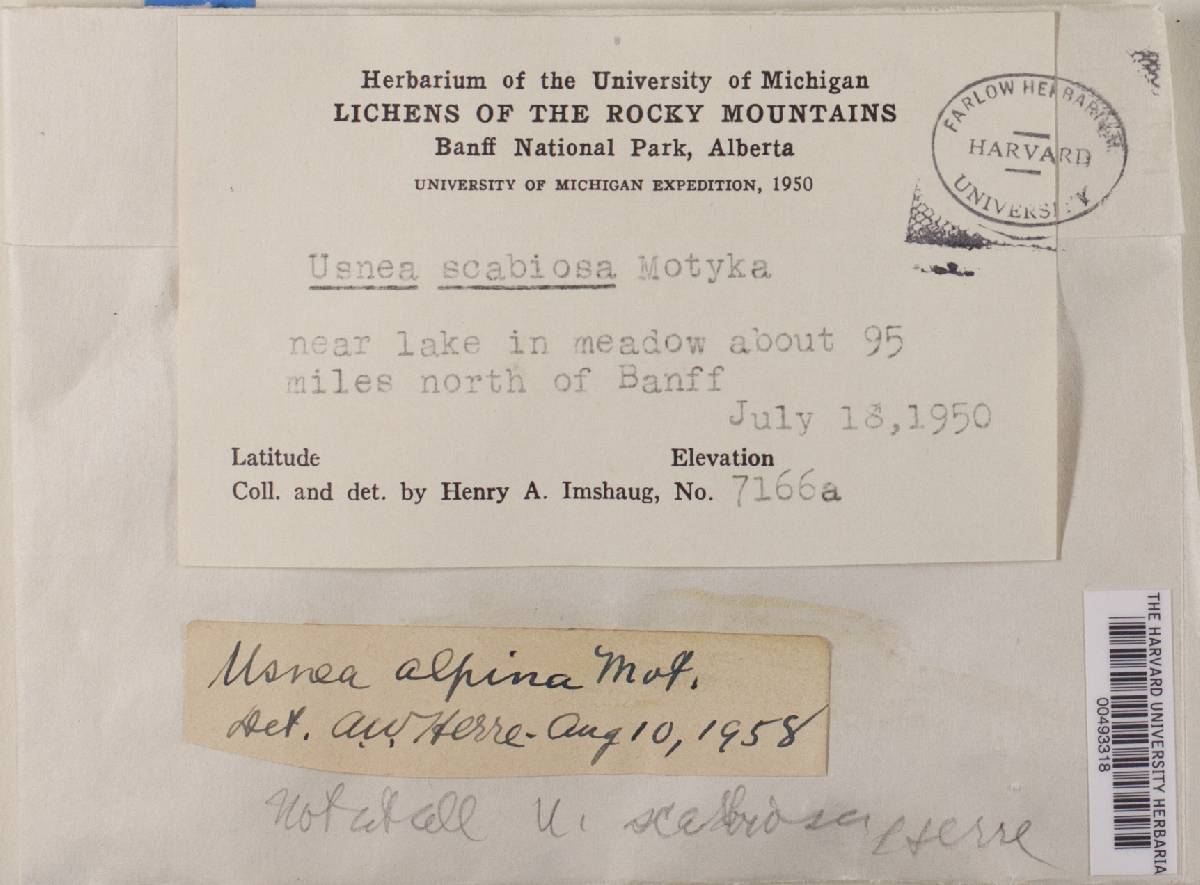 Herbarium of the University of Michigan
LICHENS OF THE ROCKY MOUNTAINS
Banff National Park, Alberta
UNIVERSITY OF MICHIGAN EXPEDITION, 1950
FARLOW HERBARIUM
HARVARD
UNIVERSITY
Usnea scabiosa Motyka
near lake in meadow about 95
miles north of Banff
July 18,1950
Latitude Elevation
Coll. and det. by Henry A. Imshaug, No. 7166a
Usnea alpina Mot.
Det. A.W. Herre - Aug 10, 1958
Not at all U. scabiosa Herre
THE HARVARD UNIVERSITY HERBARIA
00493318